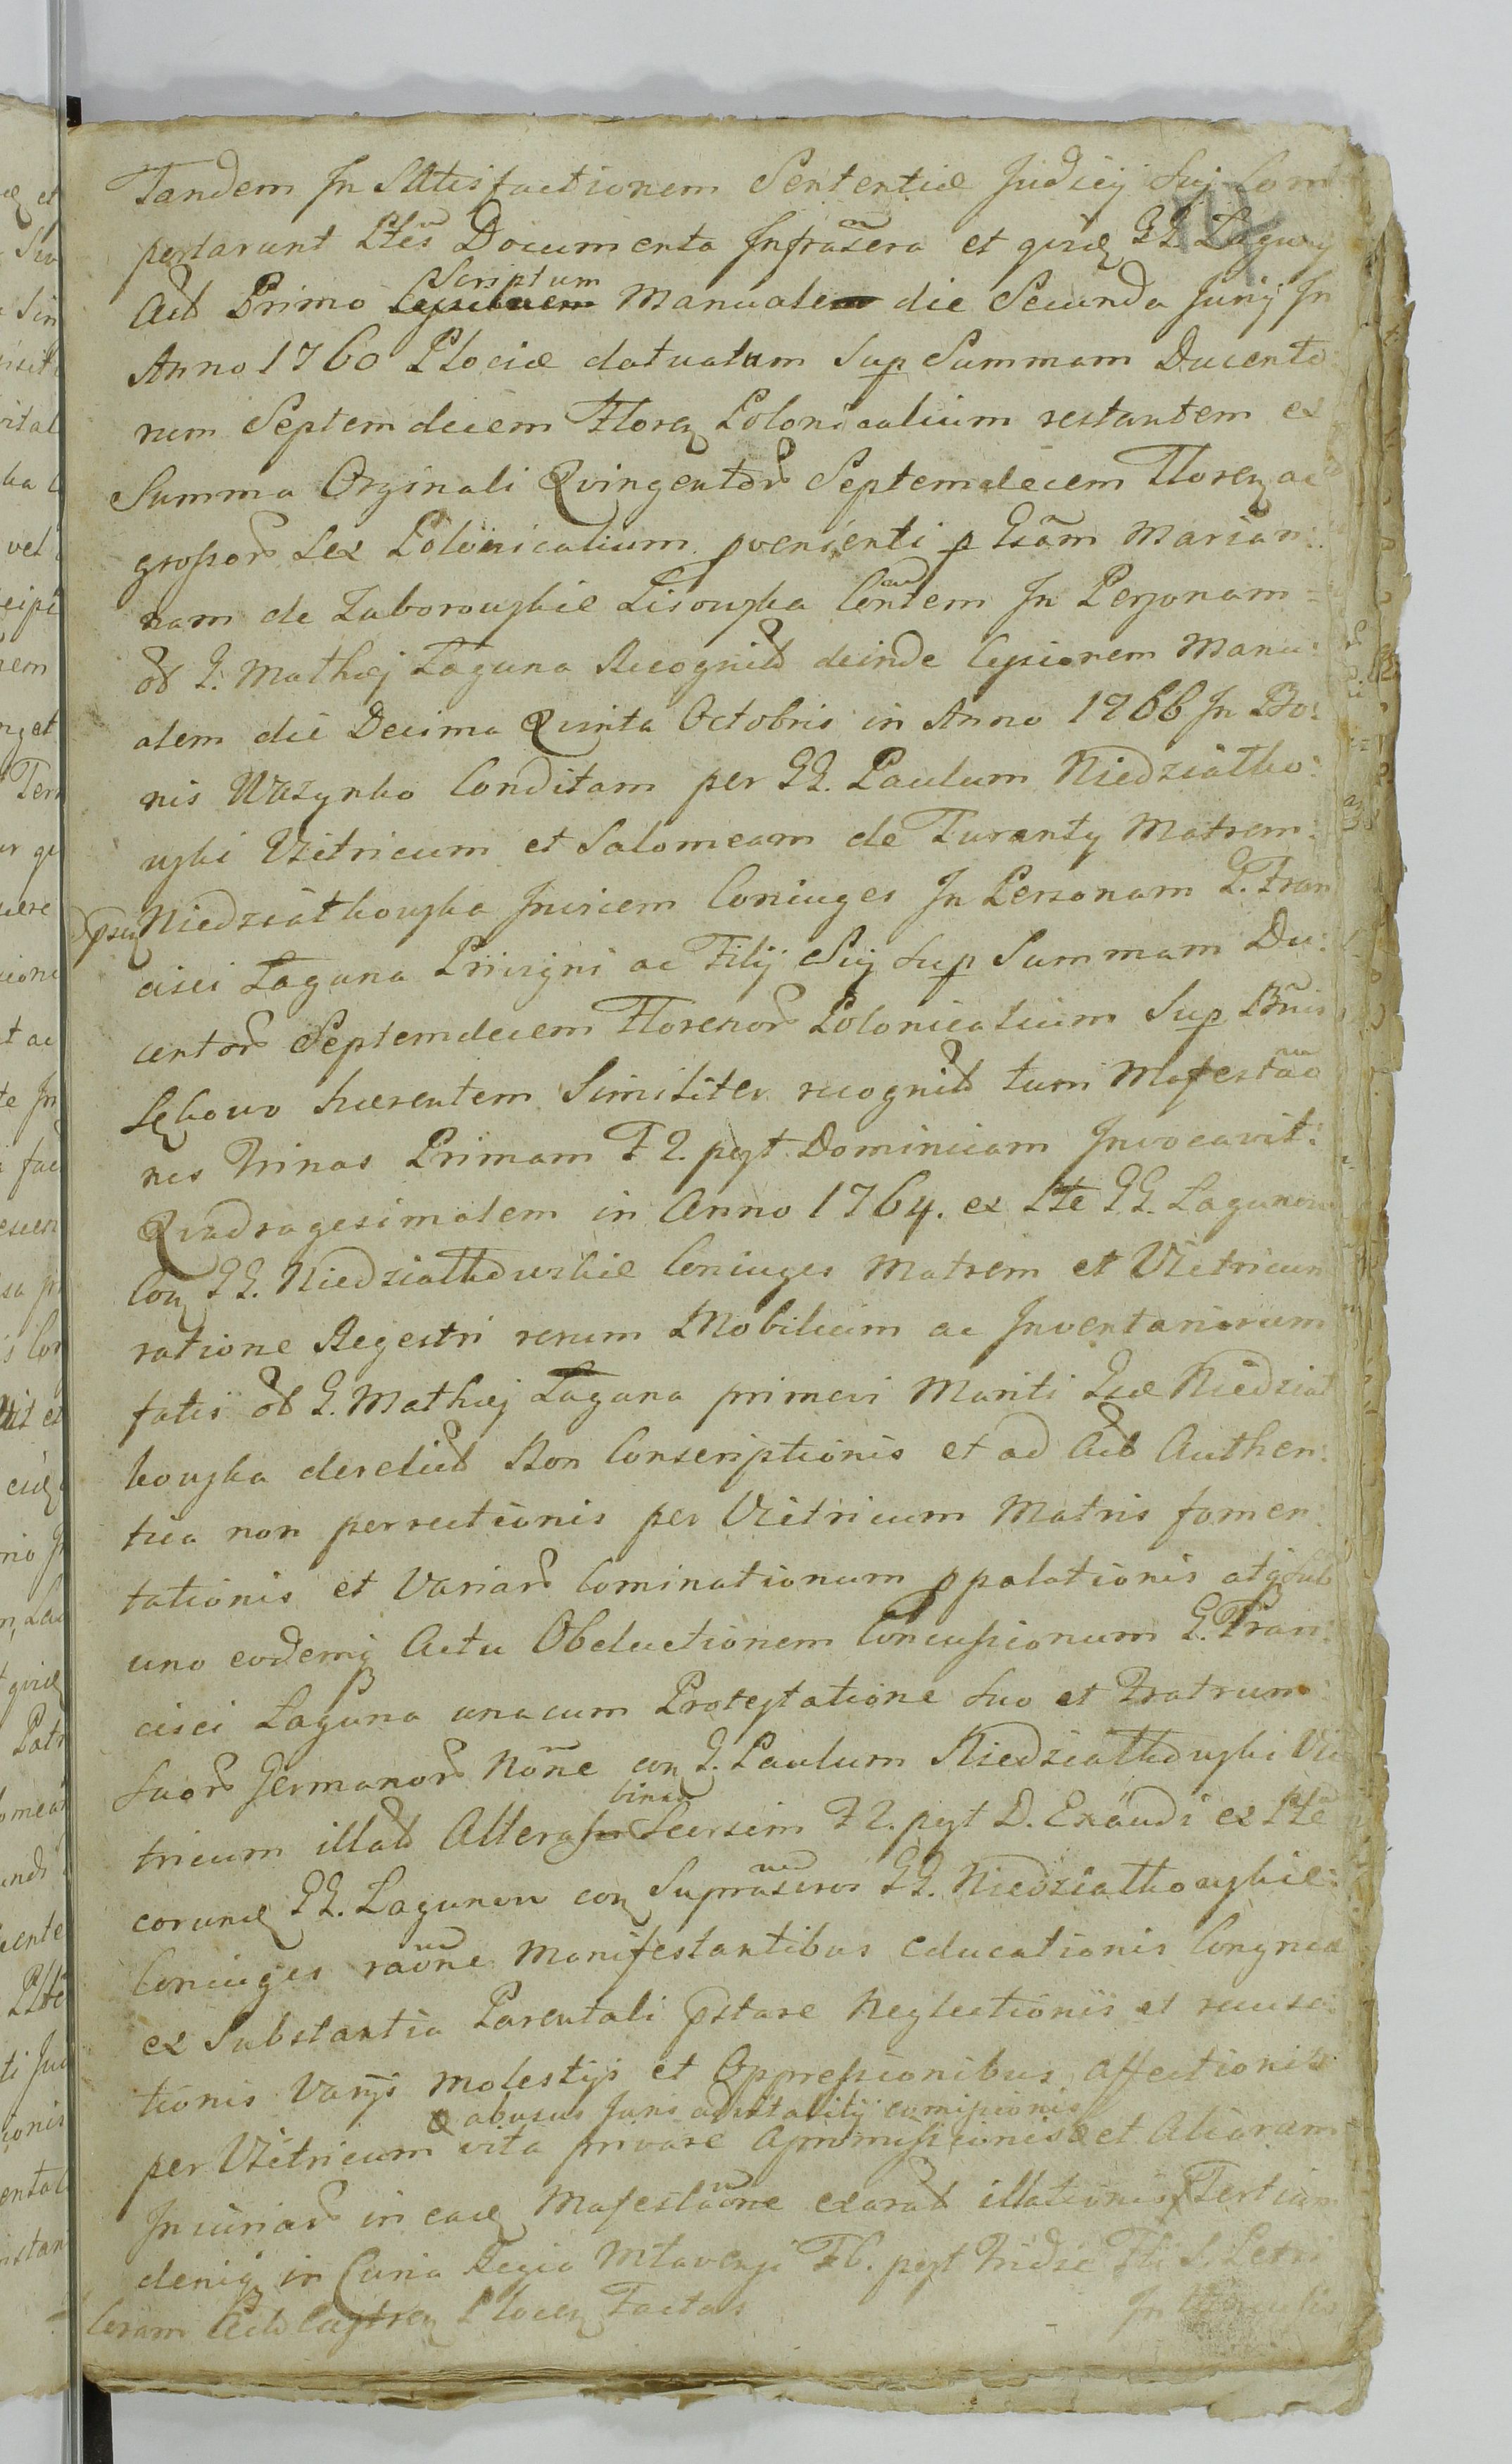 Tandem In Satisfactionem Sententiæ Judicij Sui Com
portarunt Ptes Documenta Infrascra et quidẽ GG. Laguny
Scriptum
Act Primo Manuale die Secunda Junij In
Anno 1760 Plociæ datuatum Sup Summam Ducento:
rum Septemdecem Floreņ Polonicalium restantem ex
Summa Orginali Qvingentor Septemdecem Floreņ ac
grossor Sex Polonicalium pvenienti p Gsam Marian:
nam de Zaborowskie Lisowska Contem In Personam
ol G. Mathej Laguna Recognit deinde Cessionem Manu:
alem die Decima Qvinta Octobris in Anno 1766 In Bo:
nis Wszynko Conditam per GG. Paulum Niedziałko:
wski Vitricum et Salomeam de Turanty Matrem
Niedziałkowska Invicem Coniuges In Personam G. Fran
cisci Laguna Privigni ac Filij Sui Sup Summam Du:
centor Septemdecem Florenor Polonicalium Sup Bnis
Lękowo hærentem Similiter recognit tum Mafestao
nes Trinas Primam F2. post Dominicam Invocavit:
Qvadragesimalem in Anno 1764. ex Pte GG. Lagunow
Con GG. Niedziałkowskie Coniuges Matrem et Vitricum
ratione Regestri rerum Mobilium ac Inventariorum
fatis ol G. Mathej Laguna primevi Mariti Gsæ Niedział
kowska derelict Bon Conscriptionis et ad Act Authen:
tica non perrectionis per Vitricum Matris fomen:
tationis et Variar Cominationum ppalationis atq Sub
uno eodemq Actu Obductionem Concussionum G. Fran:
cisci Laguna unacum Protestatione Suo et Fratrum
Suor Germanor Noñe con G. Paulum Niedziałkowski Vi:
tricum illat Altera Seorsim F2. post D. Exaudi ex Pte
eorundẽ GG. Lagunow con Suprascros GG. Niedziałkowskie
Coniuges raõne Manifestantibus educationis Congruæ
ex Substantia Parentali pstare Neglectionis et recusa:
tionis Varijs Molestijs et Oppressionibus affectionis
abusus Juris advitalitij comissionis
per Vitricum vita privare Apromissionis et Aliarum
Injuriar in eadẽ Mafestaõne exarat illationis Tertiam
deniq in Curia Regia Mlavensi F6. post Fti S. Petri
Coram Act Castreņ Ploceņ Factas
In